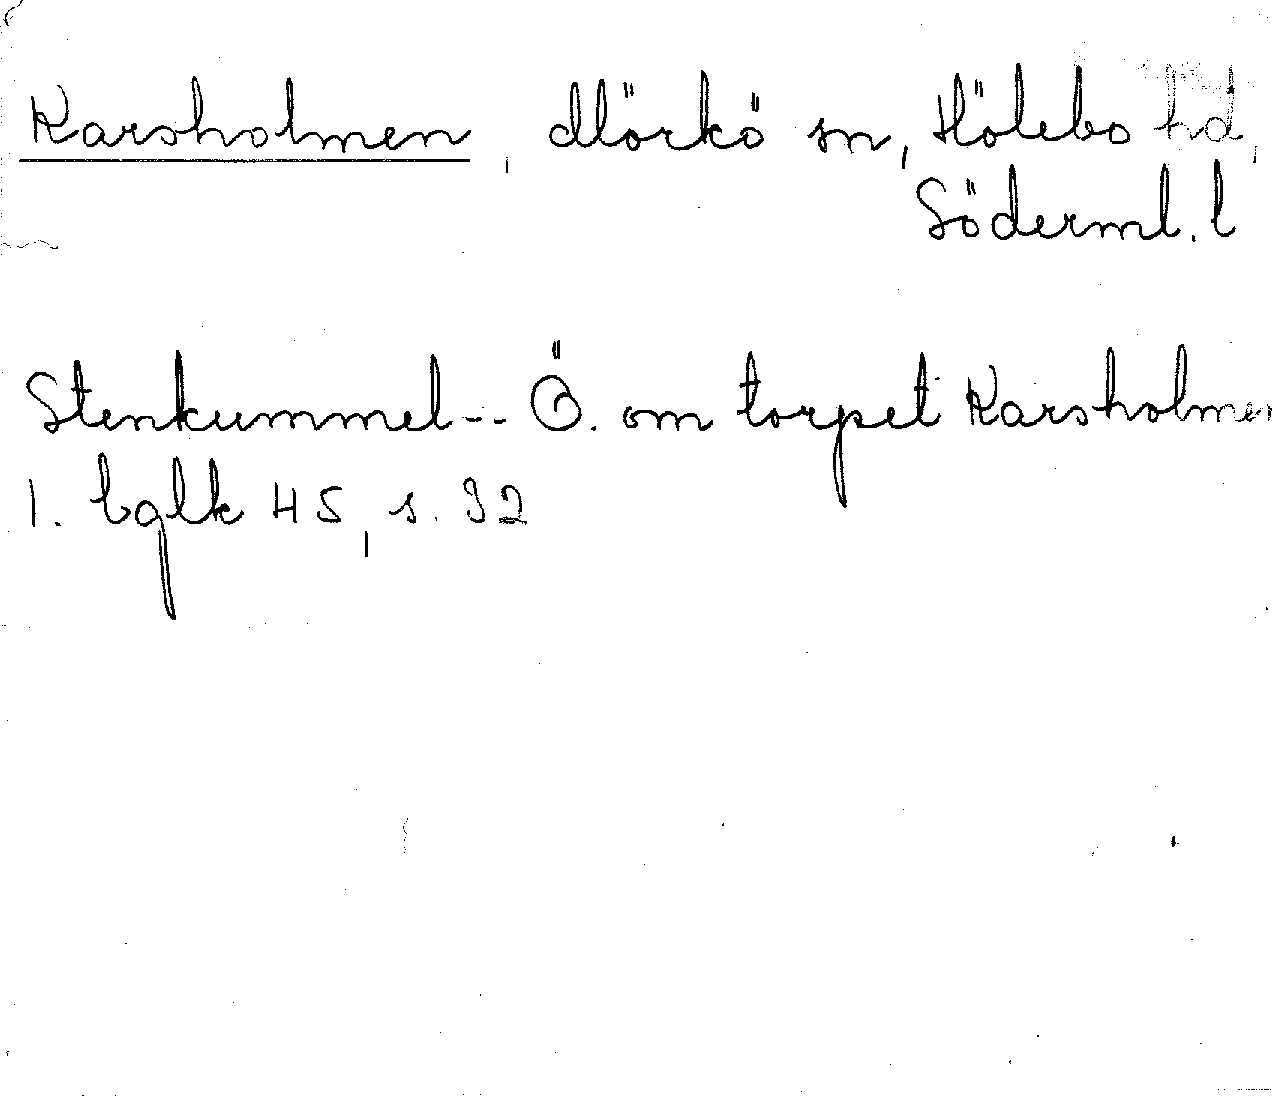 Karsholmen, Mörkö sn, Hölebo hd,
Söderml. l
Stenkummel-- Ö. om torpet Karsholmen
1. bglk 45, s. 92